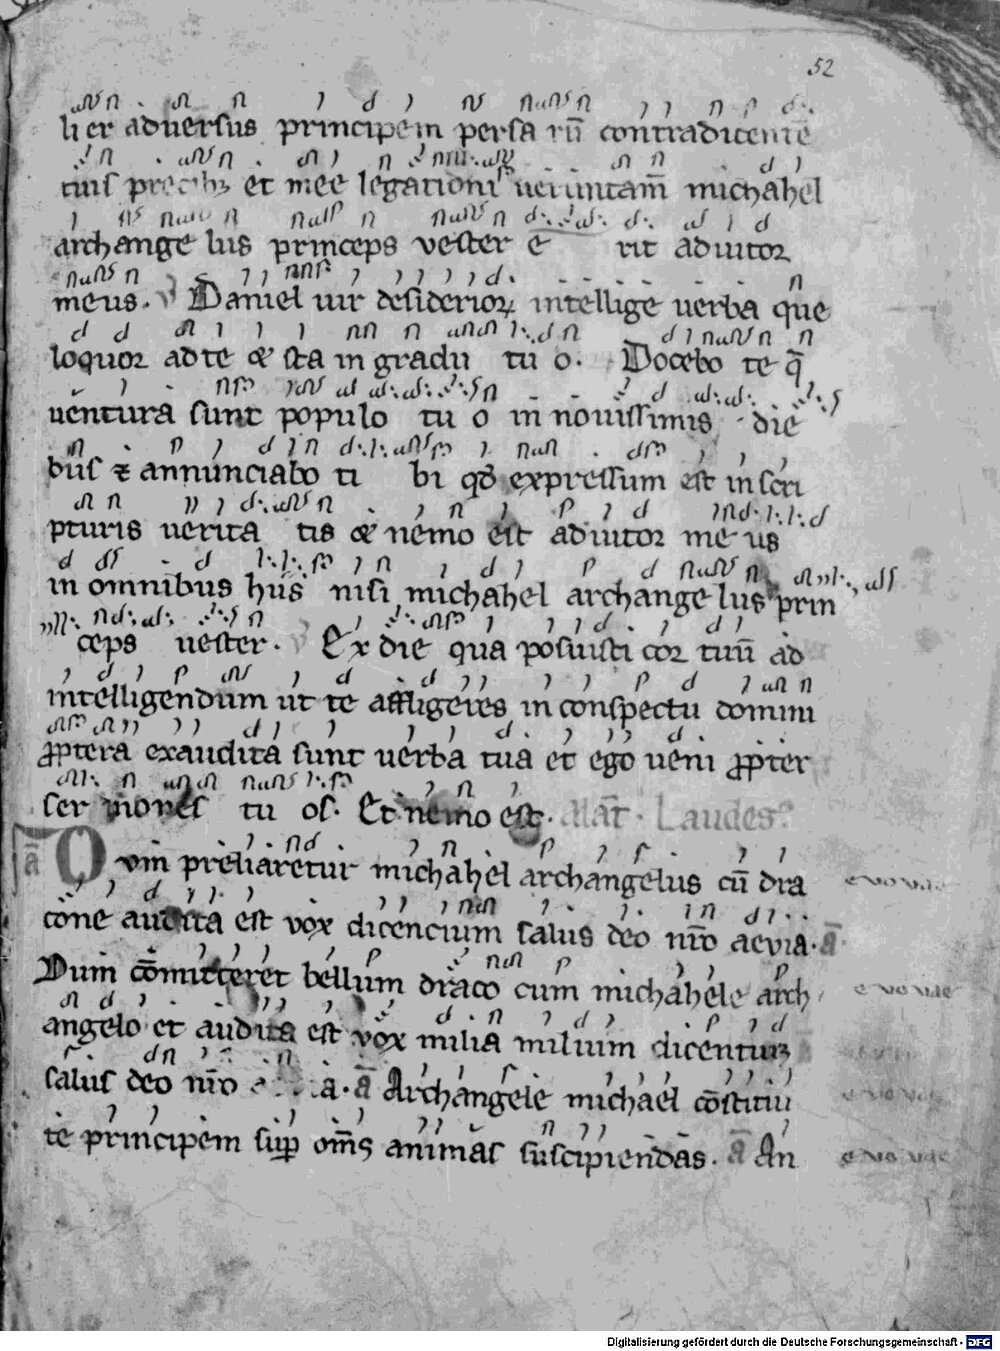 52
li er aduersus principem persa rū contradicentē
tuis precibꝫ et mee legationi ueruntam̄ michahel
archange lus princeps uester e rit adiutor
meus. V Daniel uir desiderioꝝ intellige uerba que
loquor ad te & sta in gradu tu o. Docebo te q̄
uentura sunt populo tu o in nouissimis die
bus & annunciabo ti bi qđ expressum est in scri
pturis uerita tis & nemo est adiutor me us
in omnibus hiis nisi michahel archange lus prin
ceps uester. V Ex die qua posuisti cor tuū ad
intelligendum ut te affligeres in conspectu domini
ꝓptera exaudita sunt uerba tua et ego ueni ꝓpter
ser mones tu os. Et nemo est. Laudes.
ā Dum preliaretur michahel archangelus cū dra
cone audita est vox dicencium salus deo nr̄o aevia. ā
Dum cōmitteret bellum draco cum michahele arch
angelo et audita est vox milia milium dicentiuꝫ
salus deo nr̄o a. ā Archangele michael cōstitui
te principem suꝑ om̄s animas suscipiendas. ā An
Digitalisierung gefördert durch die Deutsche Forschungsgemeinschaft - DFG